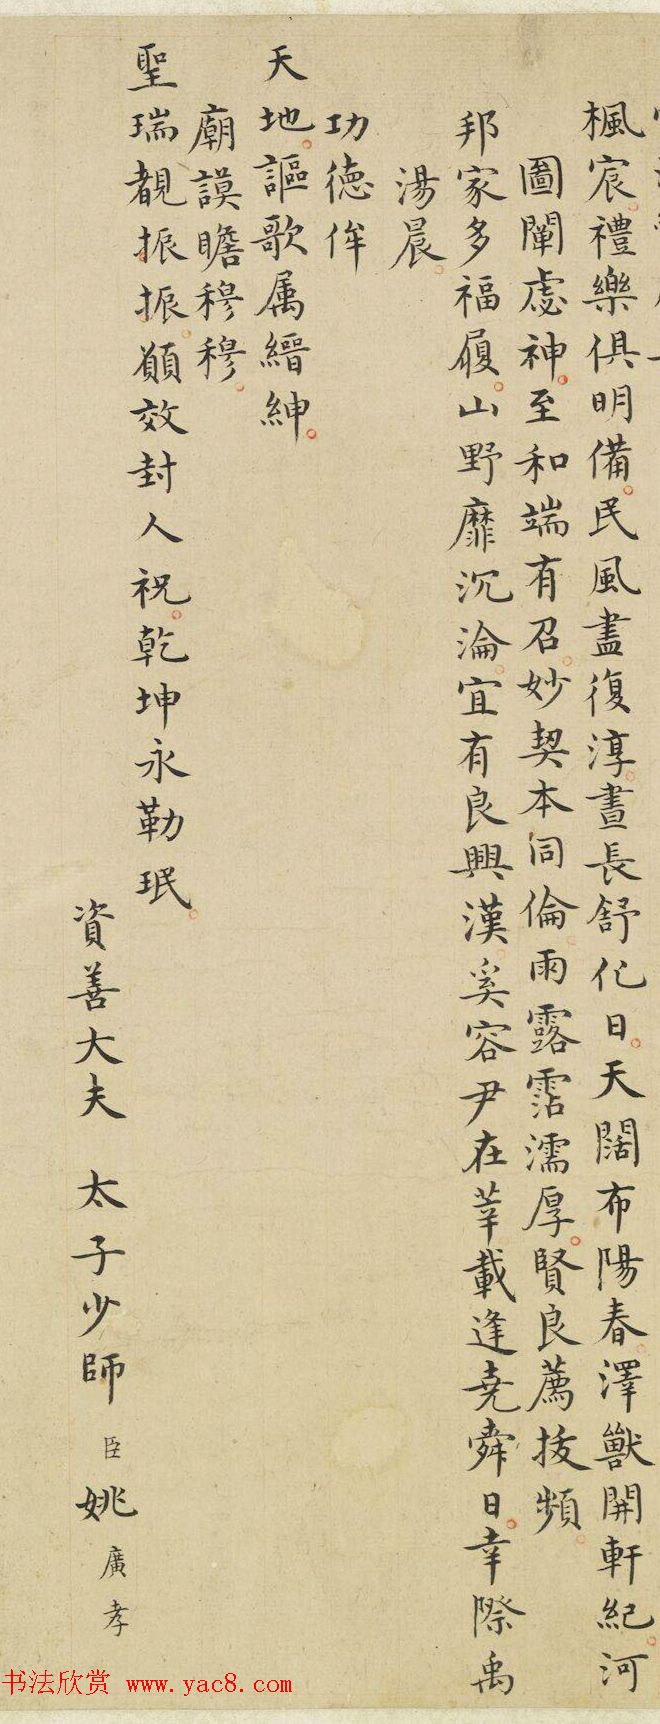 楓宸禮樂俱明備民風盡復淳晝長舒化日天闊布陽春澤獸開軒紀河
圖闡虙神至和端有召妙契本同倫雨露霑濡厚賢良薦拔頻
邦家多福履山野靡沉淪宜有良興漢奚容尹在莘載逢堯舜日幸際禹
湯晨
功德侔
天地謳歌属縉紳
廟謨瞻穆穆
聖瑞覩振振願效封人祝乾坤永勒珉
資善大夫 太子少師臣姚廣孝
书法欣赏 www.yac8.com